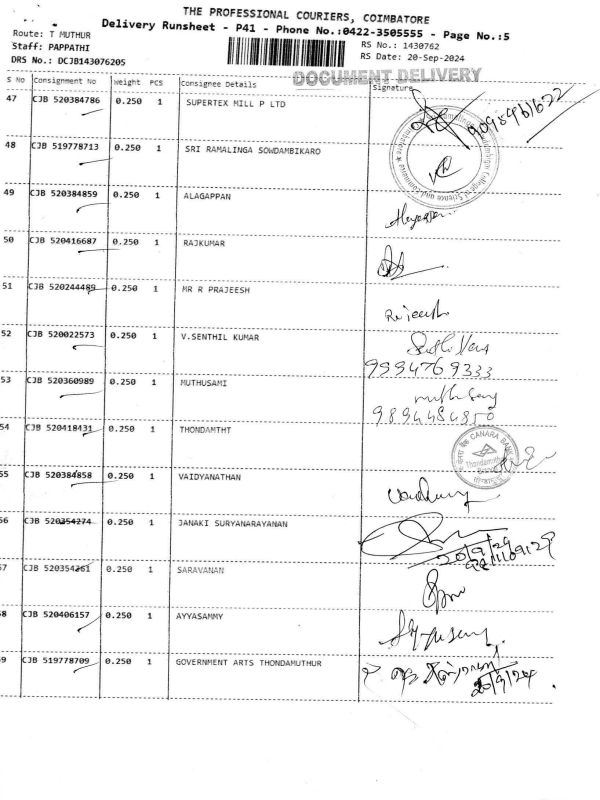 THE PROFESSIONAL COURIERS, COIMBATORE
Delivery Runsheet - P41 - Phone No.:0422-3505555 - Page No.:5
Route: T MUTHUR RS No.: 1430762
Staff: PAPPATHI RS Date: 20-Sep-2024
DRS No.: DCJB1430762O5 DOCUMENT DELIVERY
S No Consignment No Weight PCS Consignee Details Signature
47 CJB 520384786 0.250 1 SUPERTEX MILL P LTD
48 CJB 519778713 0.250 1 SRI RAMALINGA SOWDAMBIKARO
49 CJB 520384859 0.250 1 ALAGAPPAN
50 CJB 520416687 0.250 1 RAJKUMAR
51 CJB 520244489 0.250 1 MR R PRAJEESH
52 CJB 520022573 0.250 1 V.SENTHIL KUMAR
9994769333
53 CJB 520360989 0.250 1 MUTHUSAMI
9894484850
54 CJB 520418431 0.250 1 THONDAMTHT
CANARA BANK
55 CJB 520384858 0.250 1 VAIDYANATHAN
56 CJB 520354274 0.250 1 JANAKI SURYANARAYANAN
20/9/24
57 CJB 520354261 0.250 1 SARAVANAN
58 CJB 520406157 0.250 1 AYYASAMMY
59 CJB 519778709 0.250 1 GOVERNMENT ARTS THONDAMUTHUR
20/9/24